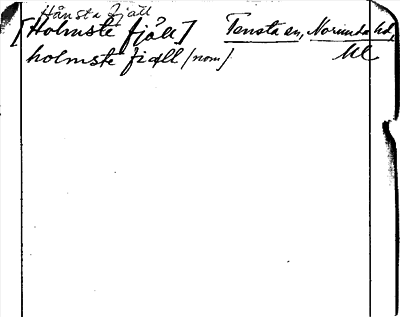 Hånsta fjäll
[Holmste fjäll] Tensta sn, Norunda hd,
holmste fiæll (nom) Ul